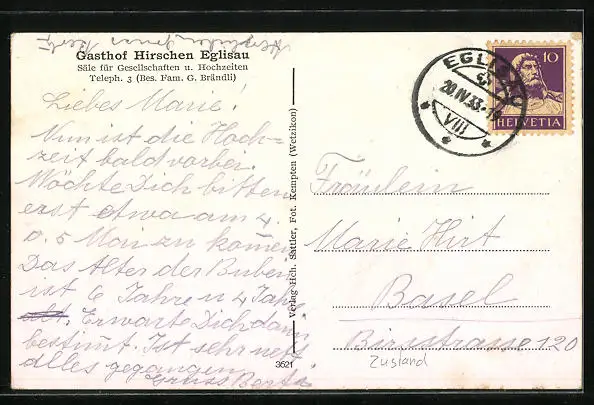 Herzlichen Gruss Berti
Gasthof Hirschen Eglisau
Säle für Gesellschaften u. Hochzeiten
Teleph. 3 (Bes. Fam. G. Brändli)
Liebes Marie!
Nun ist die Hoch=
zeit bald vorbei.
Möchte Dich bitten
erst etwa am 4.
o. 5 Mai zu kommen
Das Alter der Buben
ist 6 Jahre u 4 Jahr
alt. Erwarte Dich dann
bestimmt. Ist sehr nett
alles gegangen
Gruss Berta
Verlag Hch. Sattler, Fot. Kempten (Wetzikon)
3521
EGLISAU
20.IV.33.
VIII
10
HELVETIA
Fräulein
Marie Hirt
Basel
Birsstrasse 120
Zusland